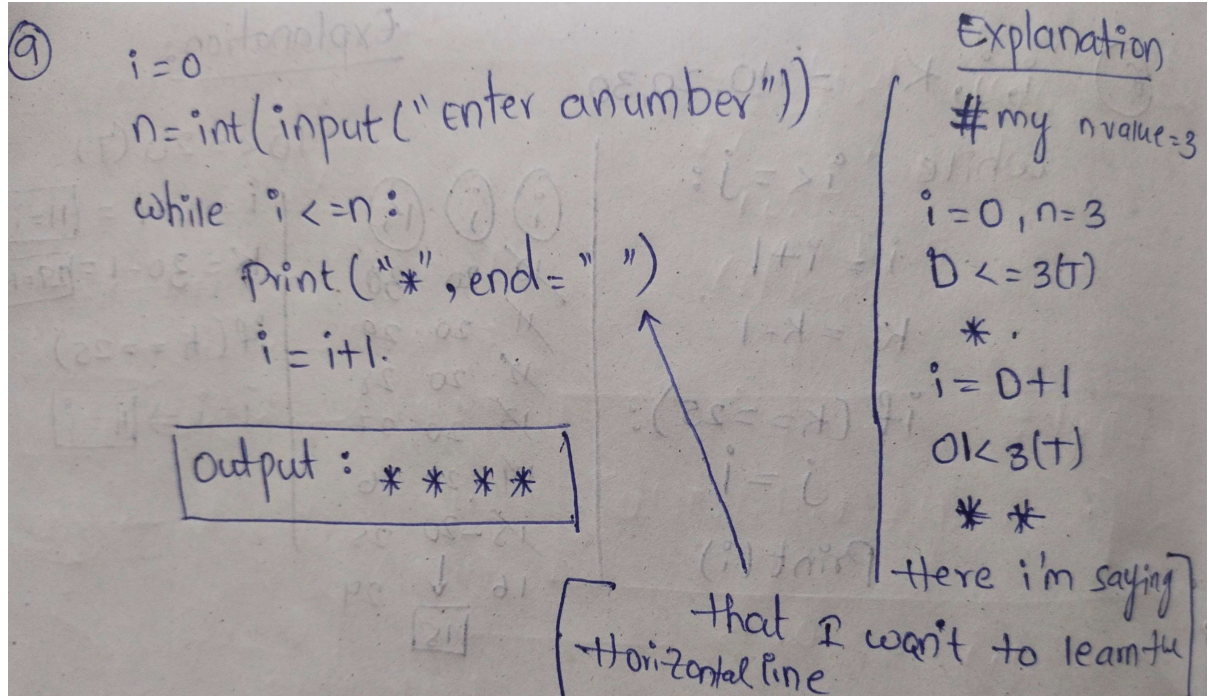 9
i=0
n=int(input("Enter a number"))
while i<=n:
print("*", end=" ")
i=i+1.
Output: * * * *
Explanation
#my n value=3
i=0, n=3
0<=3(T)
* .
i=0+1
01<3(T)
* *
Here i'm saying
that I wan't to learn the
Horizontal line